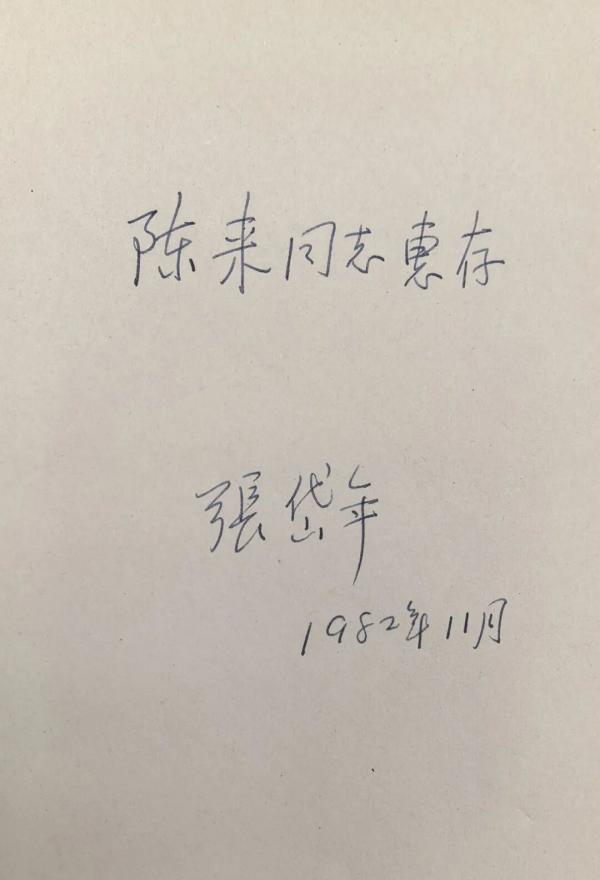 陈来同志惠存
張岱年
1982年11月